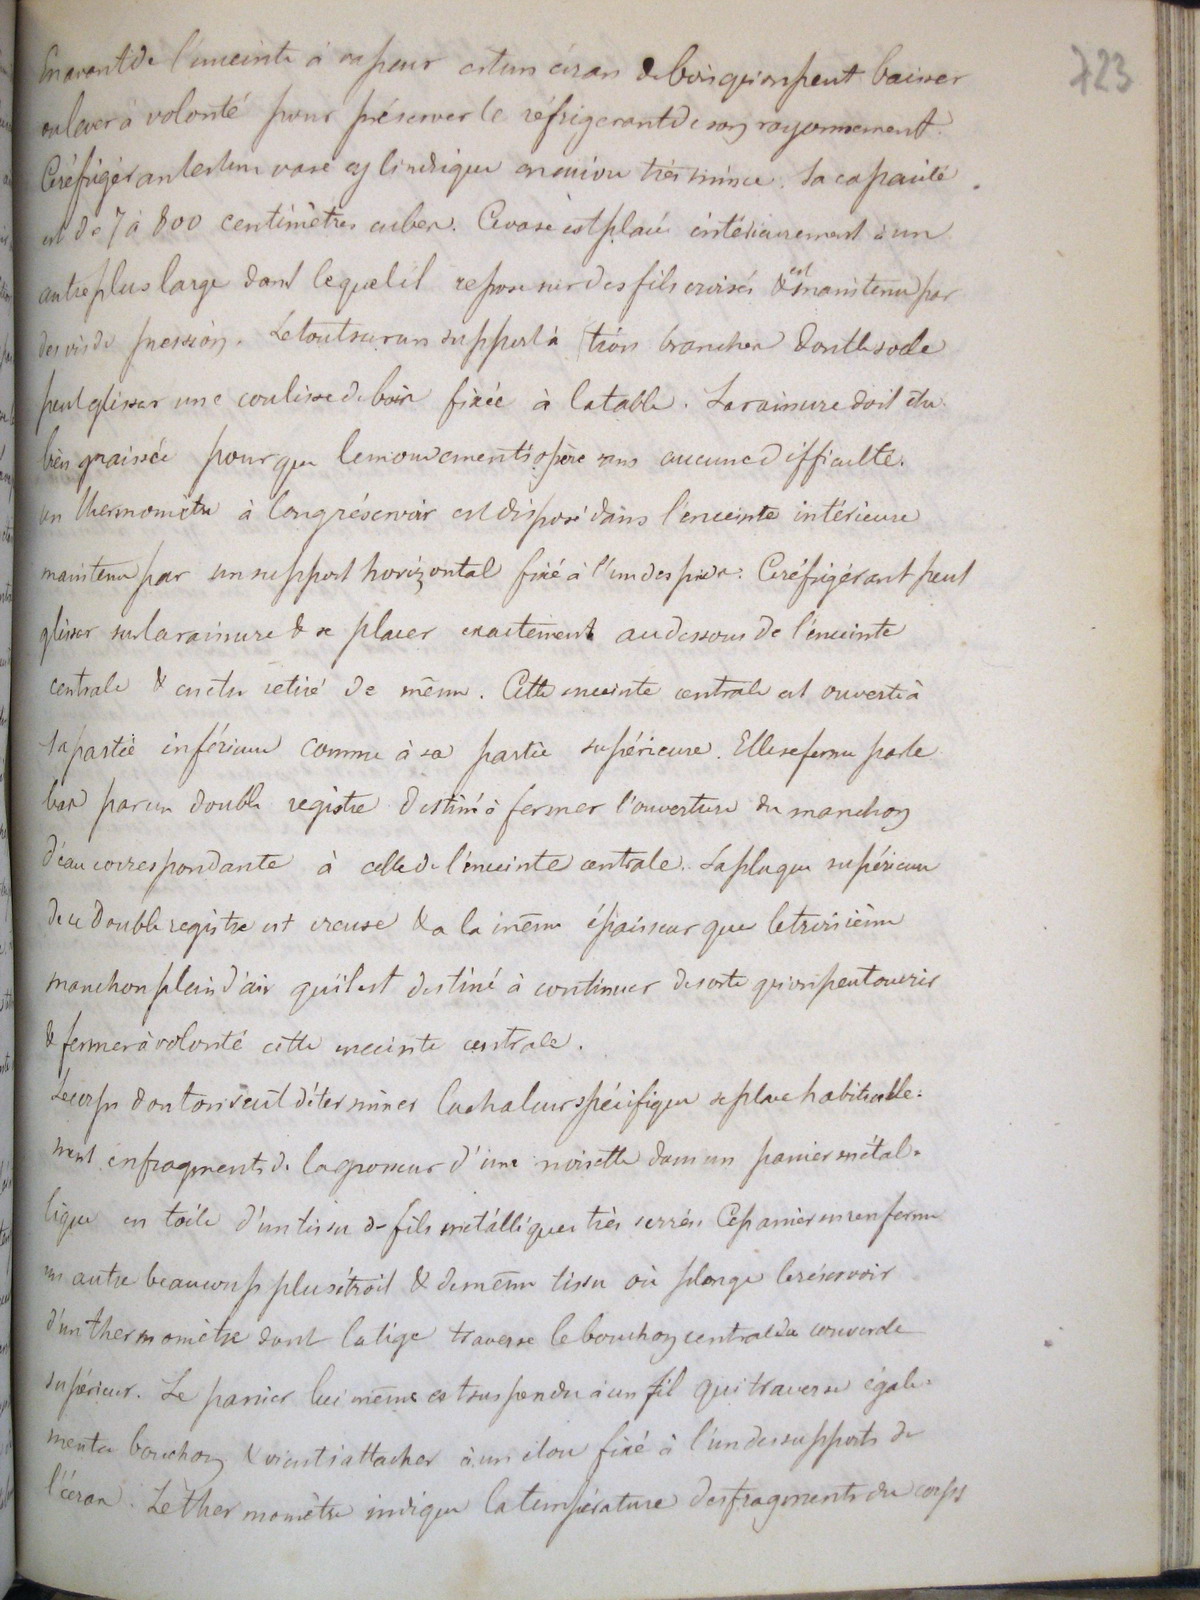 723
En avant de l'enceinte à vapeur est un écran de bois qu'on peut baisser
ou lever à volonté pour préserver le réfrigérant de son rayonnement.
Ce réfrigérant est un vase cylindrique en cuivre très mince. Sa capacité
est de 7 à 800 centimètres cubes. Ce vase est placé intérieurement à un
autre plus large dans lequel il repose sur des fils croisés & est maintenu par
des vis de pression. Le tout sur un support à trois branches dont le socle
peut glisser une coulisse de bois fixée à la table. La rainure doit être
bien graissée pour que le mouvement s'opère sans aucune difficulté.
un thermomètre à long réservoir est disposé dans l'enceinte intérieure
maintenu par un support horizontal fixé à l'un des pieds. Ce réfrigérant peut
glisser sur la rainure & se placer exactement au dessous de l'enceinte
centrale & en etre retiré de même. Cette enceinte centrale est ouverte à
sa partie inférieure comme à sa partie supérieure. Elle se ferme par le
bas par un double registre destiné à fermer l'ouverture du manchon
d'eau correspondante à celle de l'enceinte centrale. La plaque supérieure
de ce double registre est creuse & a la même épaisseur que le troisième
manchon plein d'air qu'il est destiné à continuer de sorte qu'on peut ouvrir
& fermer à volonté cette enceinte centrale.
Le corps dont on veut déterminer la chaleur spécifique se place habituelle=
ment en fragments de la grosseur d'une noisette dans un panier métal=
lique en toile d'un tissu de fils métalliques très serrés Ce panier en renferme
un autre beaucoup plus étroit & de même tissu où plonge le réservoir
d'un thermomètre dont la tige traverse le bouchon central du couvercle
supérieur. Le panier lui même est suspendu à un fil qui traverse égale=
ment ce bouchon & vient s'attacher à un clou fixé à l'un des supports de
l'écran. Le thermomètre indique la température des fragments du corps